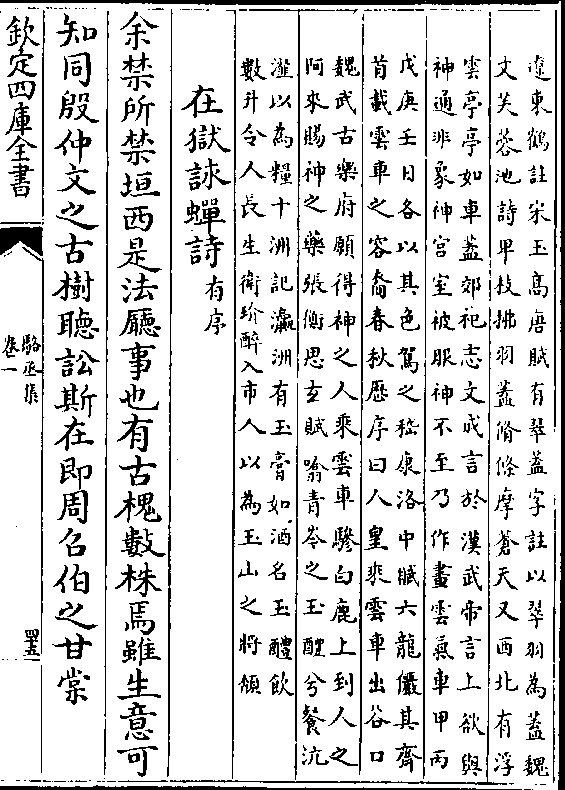 遼東鶴註宋玉高唐賦有翠蓋字註以翠羽為蓋魏
文芙蓉池詩卑枝拂羽蓋脩條摩蒼天又西北有浮
雲亭亭如車蓋郊祀志文成言於漢武帝言上欲與
神通非象神宮室被服神不至乃作畫雲氣車甲丙
戊庚壬日各以其色駕之嵇康洛中賦六龍儼其齊
首載雲車之容裔春秋歷序曰人皇乘雲車出谷口
魏武古樂府願得神之人乘雲車驂白鹿上到人之
阿來賜神之藥張衡思玄賦噏青岑之玉醴兮餐沆
瀣以為糧十洲記瀛洲有玉膏如酒名玉醴飲
數升令人長生衛玠醉入市人以為玉山之將頹
在獄詠蟬詩有序
余禁所禁垣西是法廳事也有古槐數株焉雖生意可
知同殷仲文之古樹聽訟斯在即周召伯之甘棠
欽定四庫全書
駱丞集
卷一